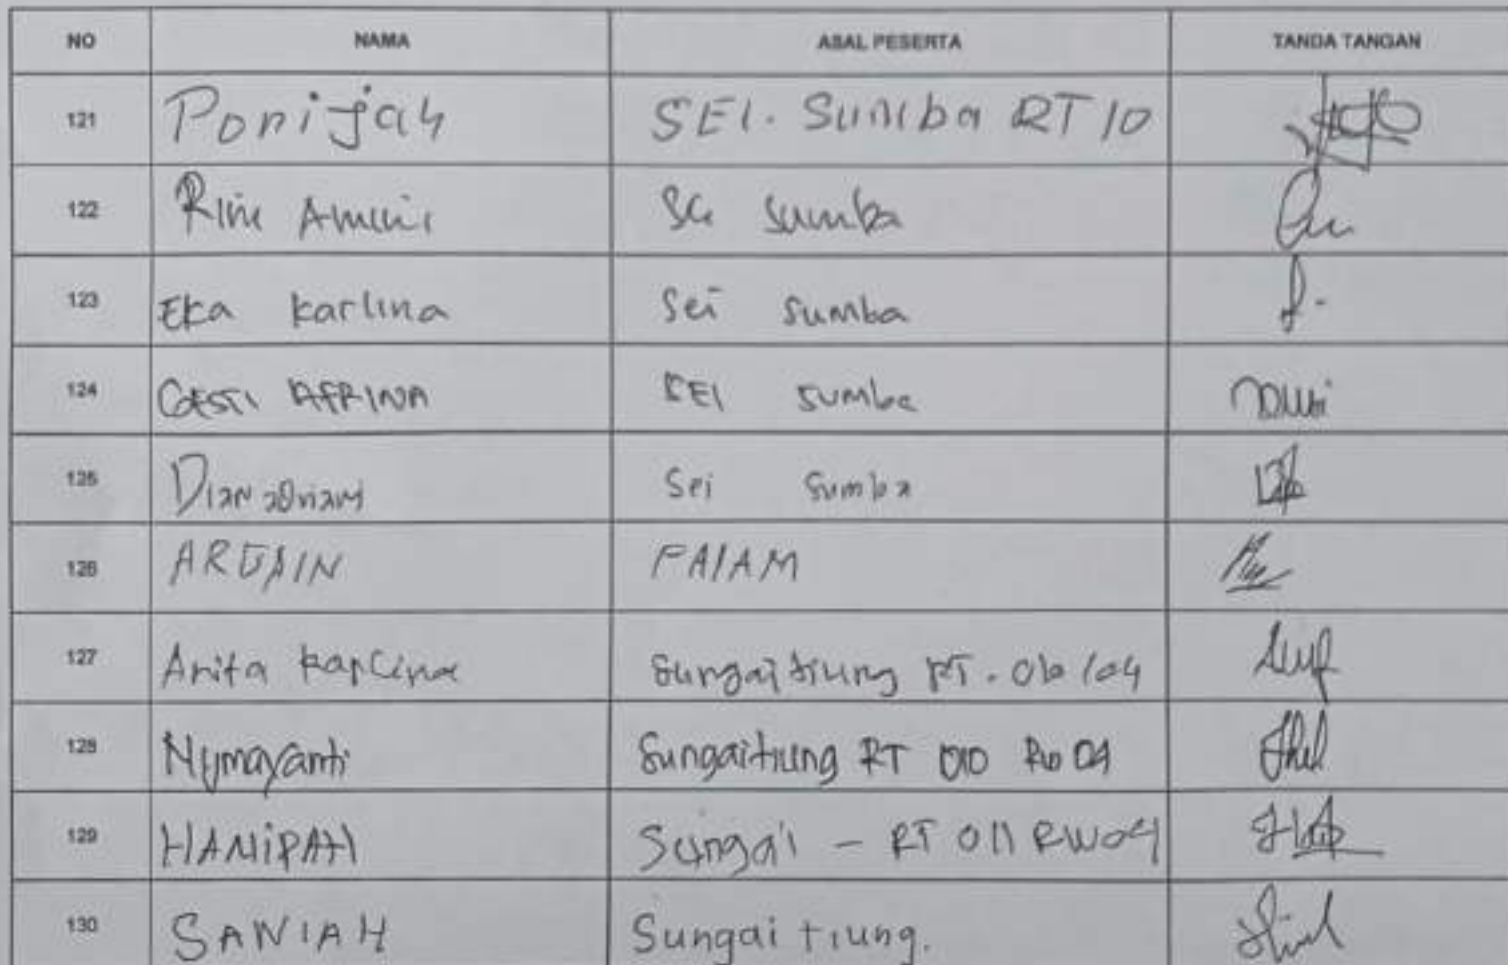 NO NAMA ASAL PESERTA TANDA TANGAN
121 Ponijah SEI. Sumba RT 10
122 Rini Amini Sei Sumba
123 Eka karlina Sei Sumba
124 GESTI AFRINA SEI Sumba
125 Dian Sei Sumba
126 PAIAM
127 Anita Sungai tiung RT. 010/04
128 Nymayanti Sungai tiung RT 010 RW 04
129 HANIPAH Sungai - RT 011 RW 04
130 SANIAH Sungai tiung.